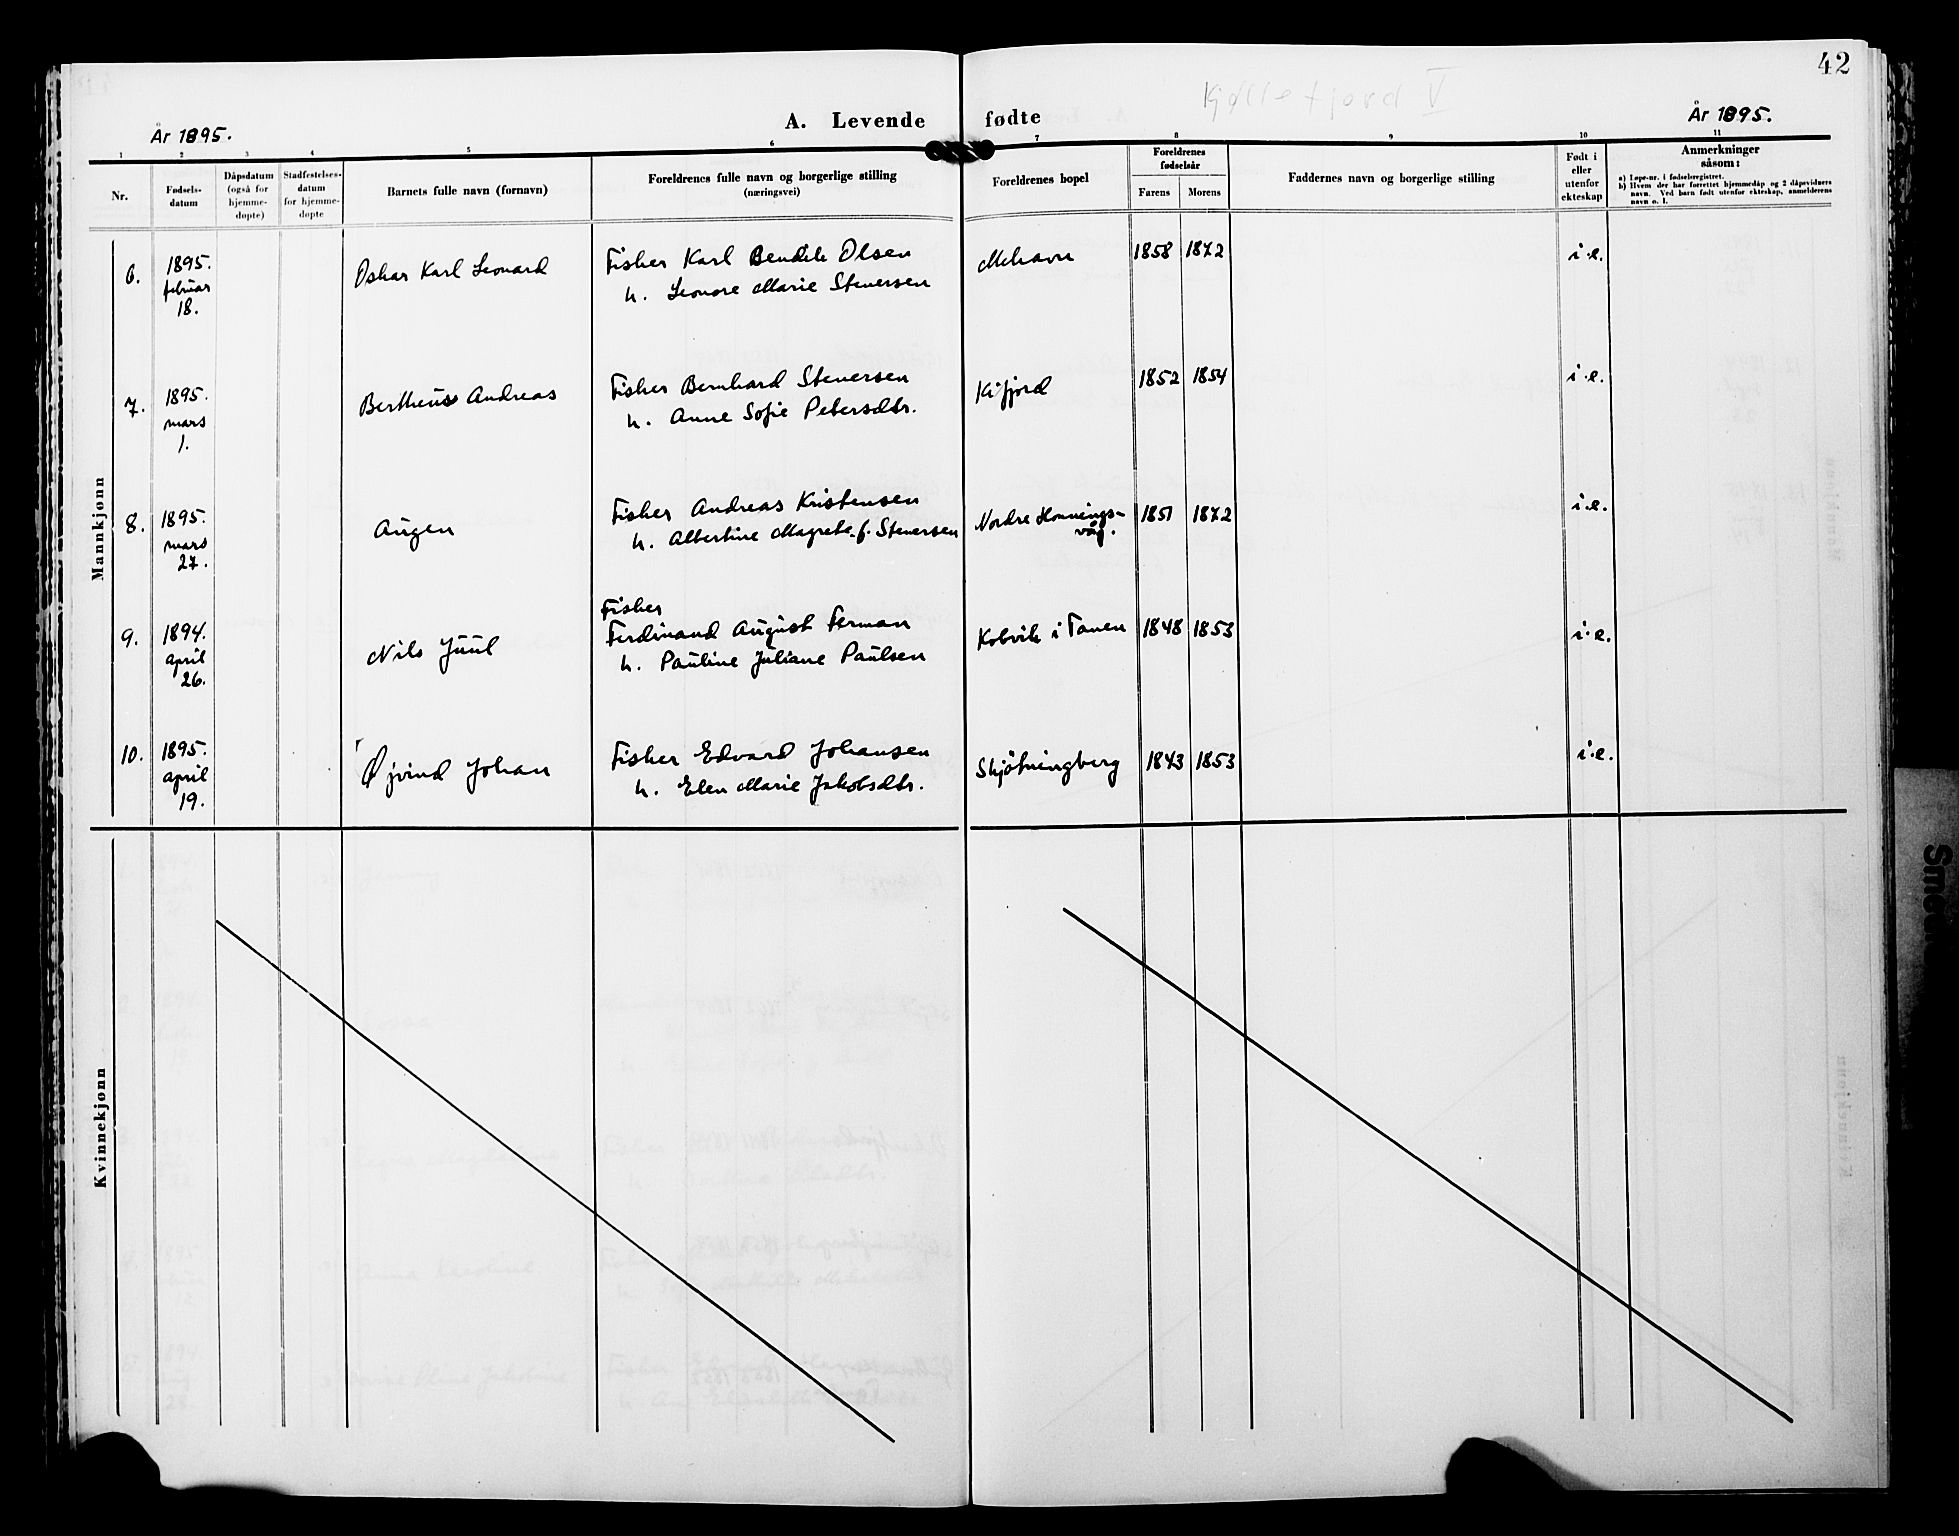 42
Kjøllefjord V
År 1895.
A. Levende fødte
År 1895.
1 2 3 4 5 6 7 8 9 10 11
Nr.
Fødsels-
datum
Dåpsdatum
(også for
hjemme-
døpte)
Stadfestelses-
datum
for hjemme-
døpte
Barnets fulle navn (fornavn)
Foreldrenes fulle navn og borgerlige stilling
(næringsvei)
Foreldrenes bopel
Foreldrenes
fødselsår
Farens Morens
Faddernes navn og borgerlige stilling
Født i
eller
utenfor
ekteskap
Anmerkninger
såsom:
a) Løpe-nr. i fødselsregistret.
b) Hvem der har forrettet hjemmedåp og 2 dåpsvidners
navn. Ved barn født utenfor ekteskap, anmelderens
navn o. l.
Mannkjønn
6.
1895.
februar
18.
Oskar Karl Leonard
Fisker Karl Bendik Olsen
h. Leonore Marie Stenersen
Mehavn
1858 1872
i.e.
7.
1895.
mars
1.
Bertheus Andreas
Fisker Bernhard Stenersen
h. Anne Sofie Petersdtr.
Kifjord
1852 1854
i.e.
8.
1895.
mars
27.
Augen
Fisker Andreas Kristensen
h. Albertine Magrete f. Stenersen
Nordre Honnings-
våg.
1851 1872
i.e.
9.
1894.
april
26.
Nils Juul
Fisker
Ferdinand August Ferman
h. Pauline Juliane Paulsen
Kobvik i Tanen
1848 1853
i.e.
10.
1895.
april
19.
Øjvind Johan
Fisker Edvard Johansen
h. Elen Marie Jakobsdtr.
Skjøtningberg
1843 1853
i.e.
Kvinnekjønn